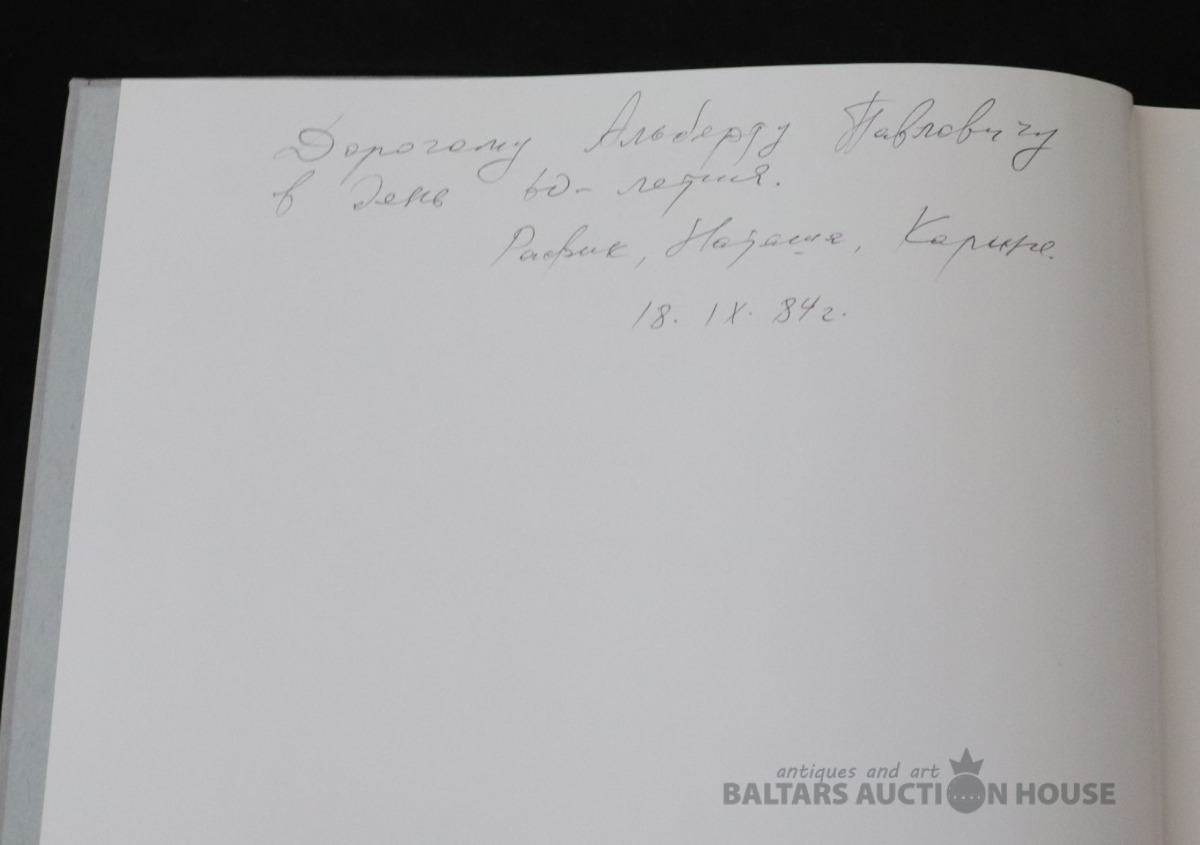 Дорогому Альберту Павловичу
в день 60-летия.
Рафик, Наташа, Карине.
18. IX. 84г.
antiques and art
BALTARS AUCTION HOUSE